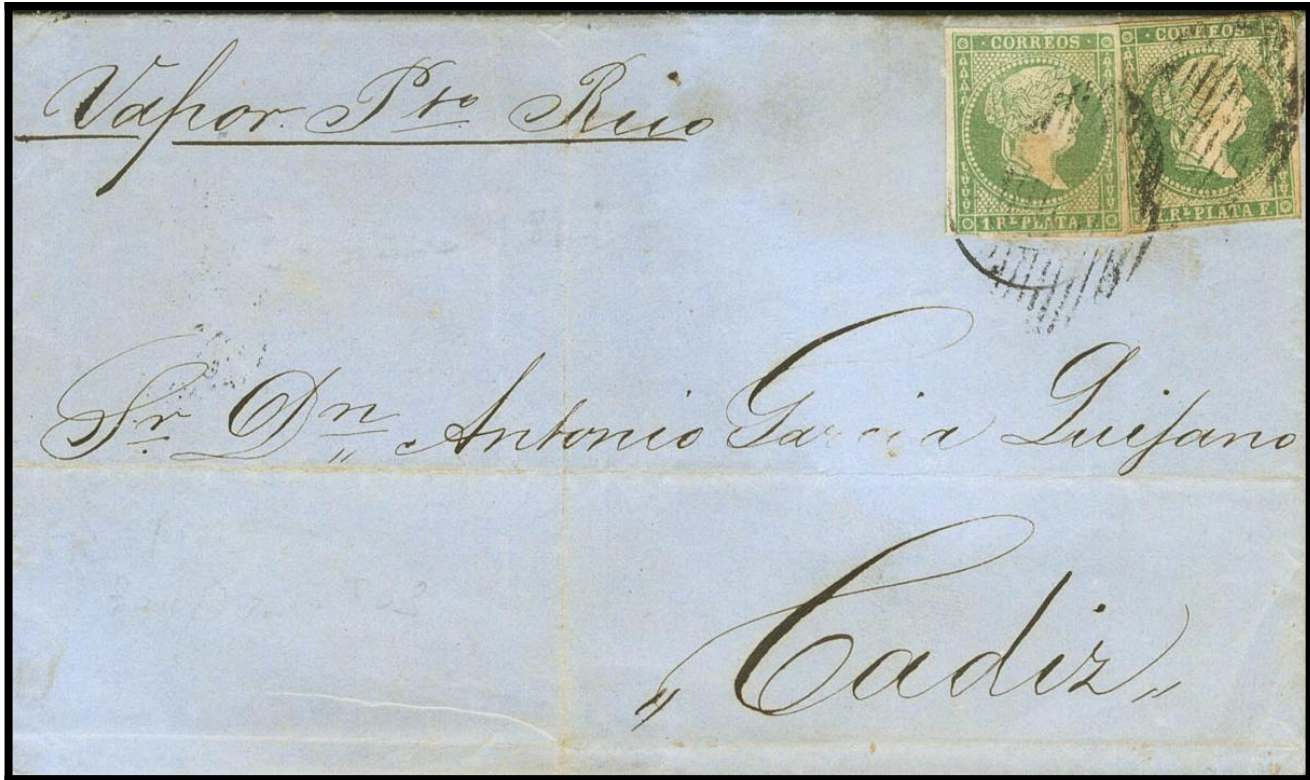 Vapor Pto Rico
CORREOS
1. RL PLATA F.
CORREOS
1. RL PLATA F.
Sr. Dn. Antonio Garcia Quijano
"Cadiz"